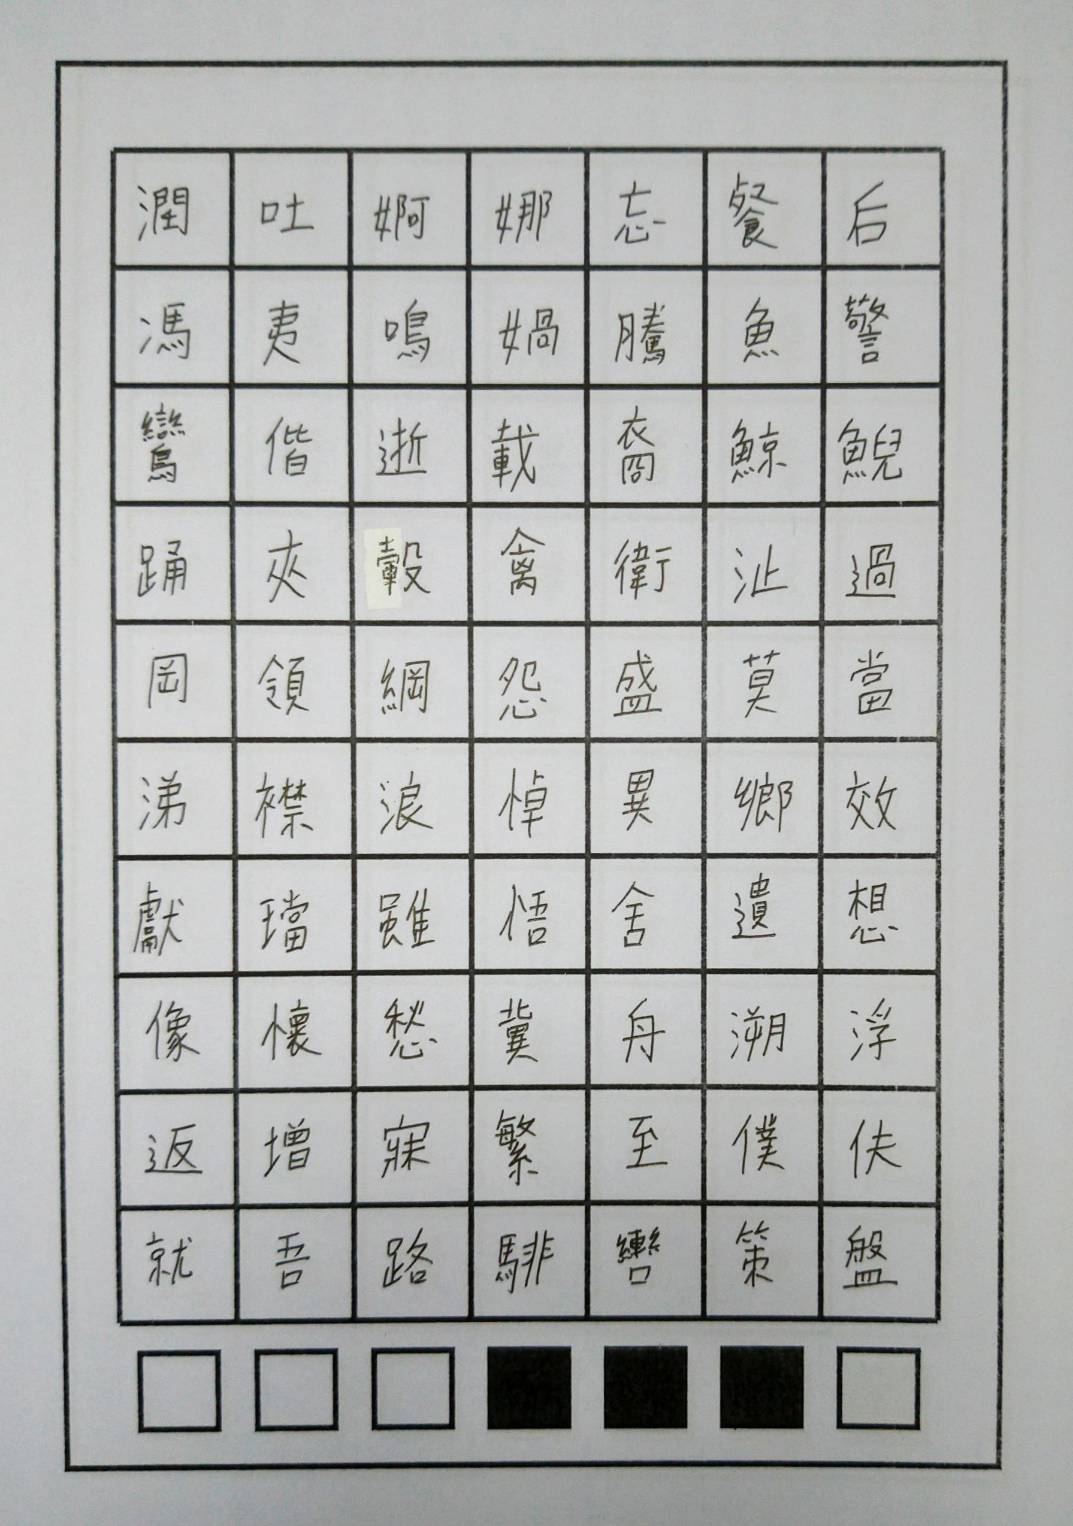 潤吐婀娜忘餐后
馮夷鳴媧騰魚警
鸞偕逝載裔鯨鯢
踊夾轂禽衛沚過
岡領綱怨盛莫當
涕襟浪悼異鄉效
獻璫雖悟舍遺想
像懷愁冀舟溯浮
返增寐繁至僕伕
就吾路騑轡策盤